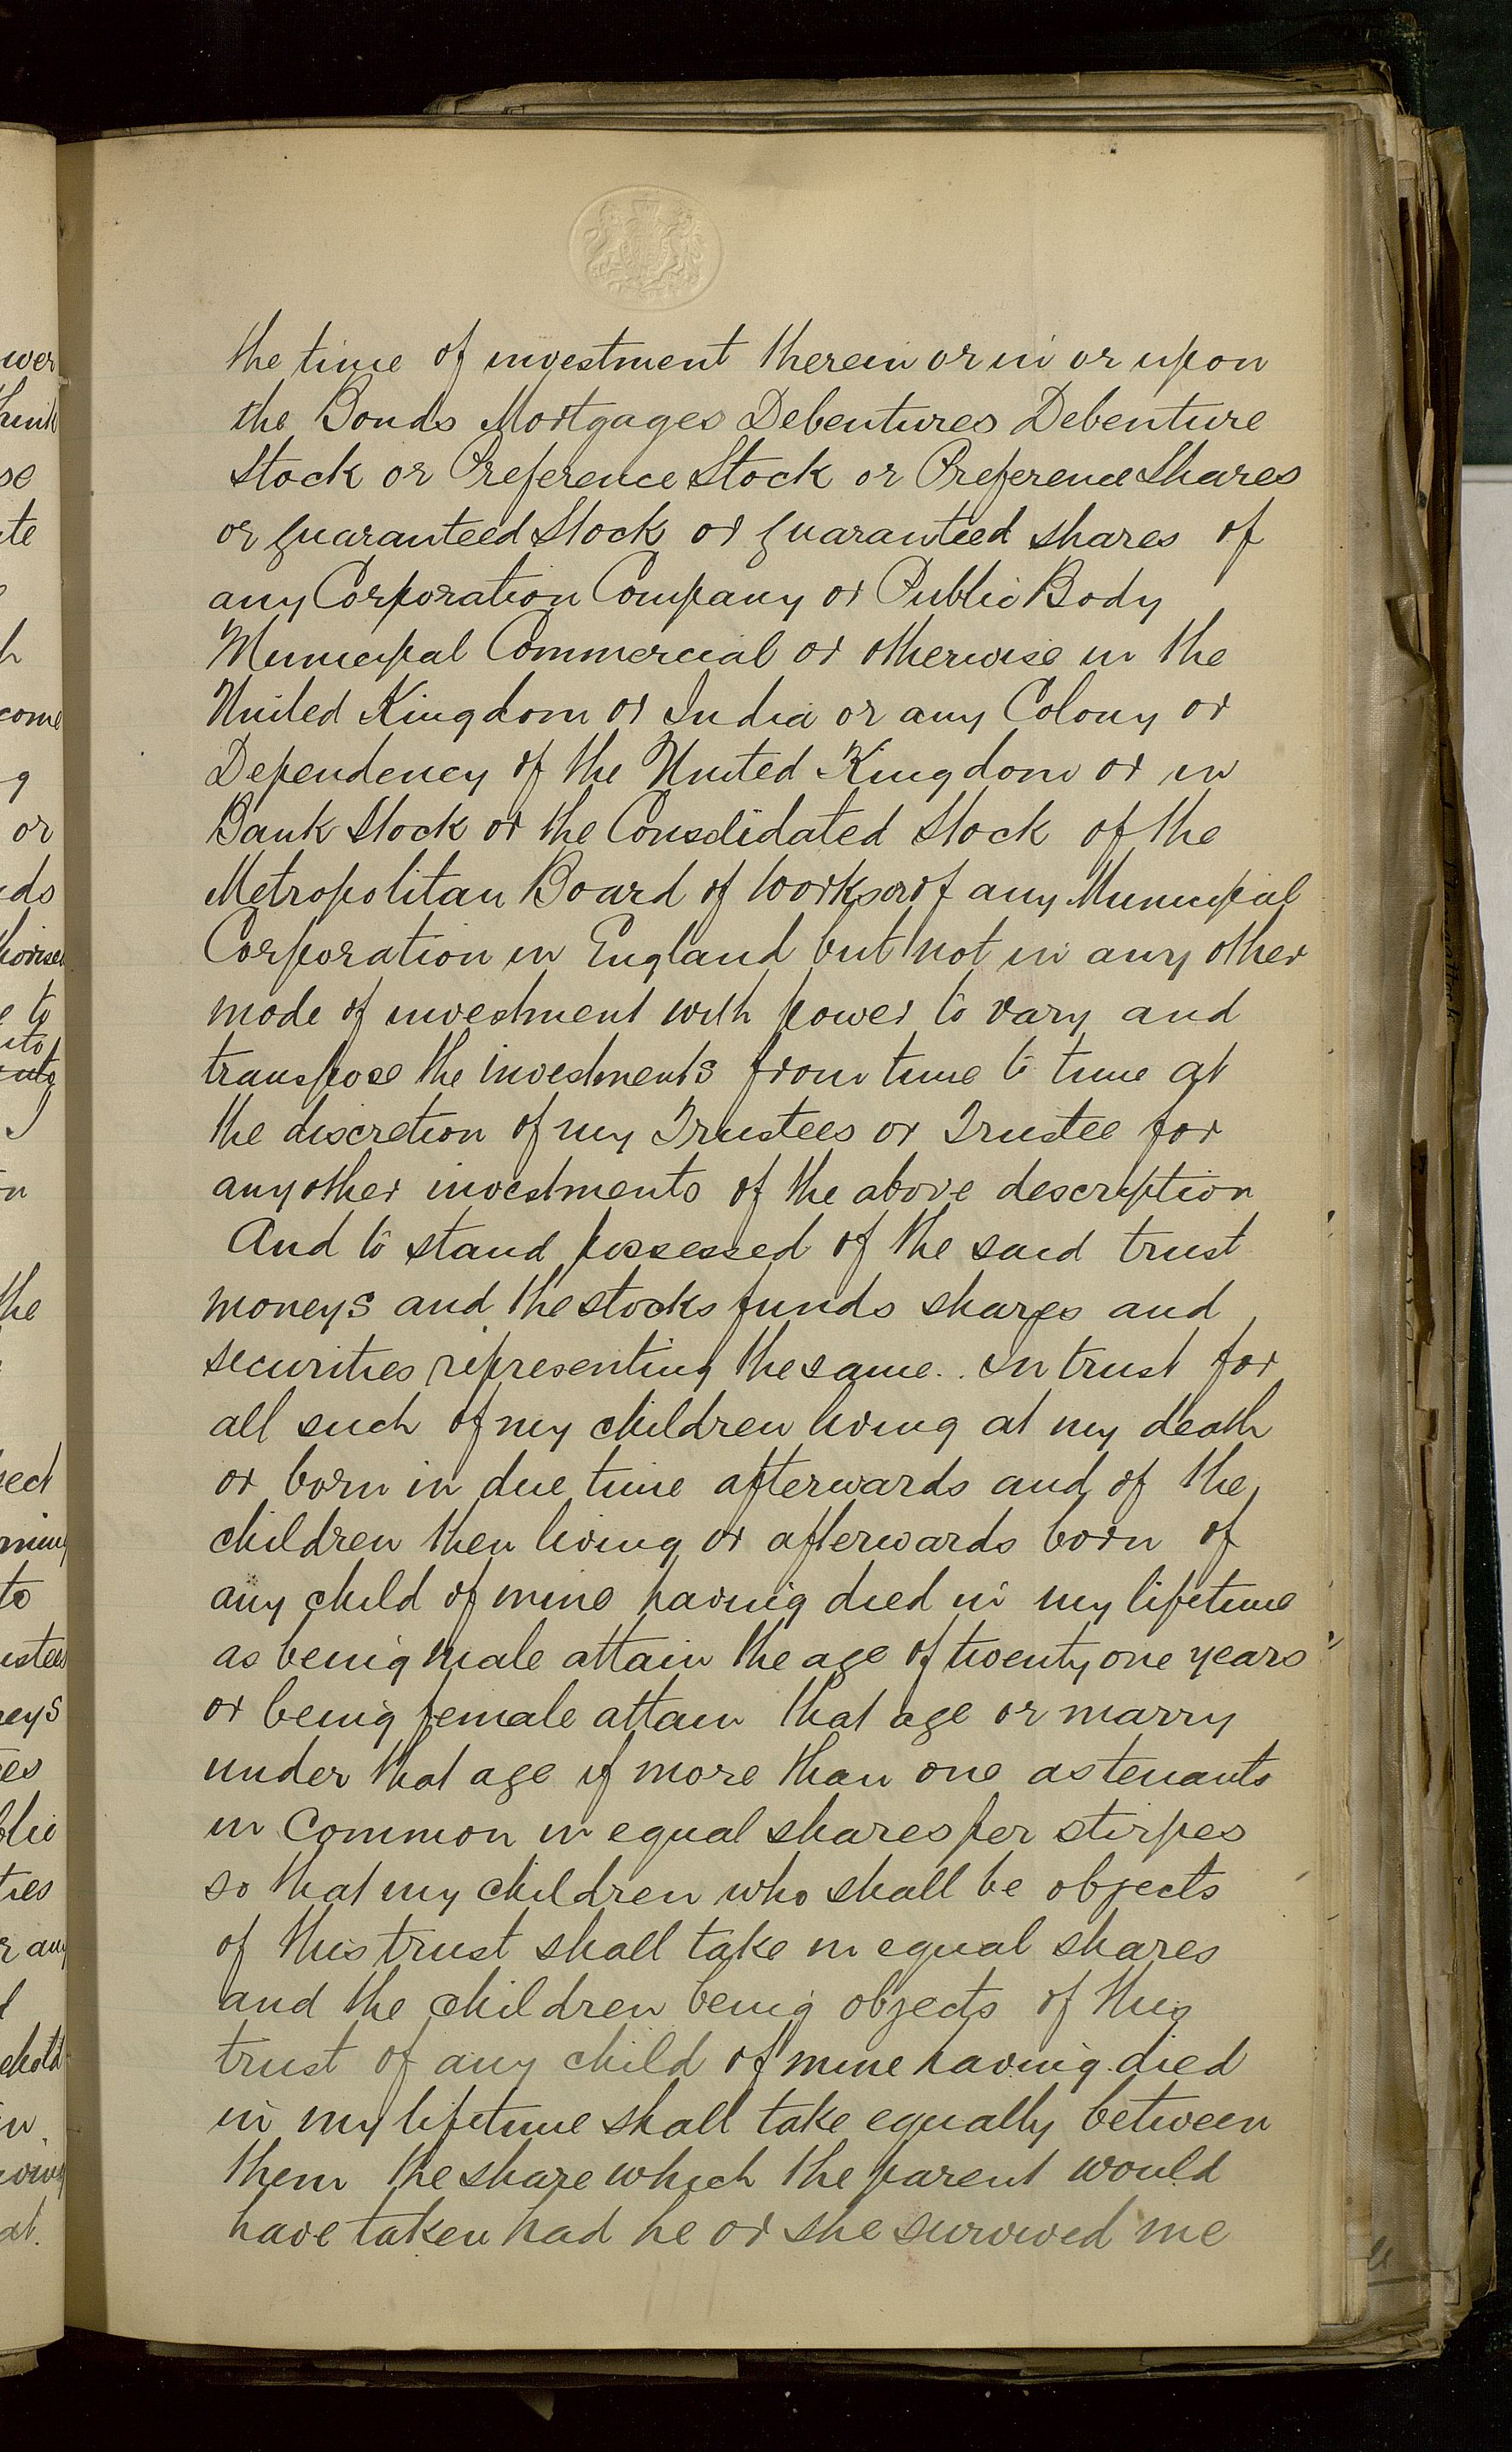 the time of investment therein or in or upon
the Bonds Mortgages Debentures Debenture
Stock or Preference Stock or Preference Shares
or guaranteed Stock or guaranteed shares of
any Corporation Company or Public Body
Municipal Commercial or otherwise in the
United Kingdom or India or any Colony or
Dependency of the United Kingdom or in
Bank Stock or the Consolidated Stock of the
Metropolitan Board of Works or of any Municipal
Corporation in England but not in any other
mode of investment with power to vary and
transpose the investments from time to time at
the discretion of my Trustees or Trustee for
any other investments of the above description
And to stand possessed of the said trust
moneys and the stocks funds shares and
securities representing the same.. In trust for
all such of my children living at my death
or born in due time afterwards and of the
children then living or afterwards born of
any child of mine having died in my lifetime
as being male attain the age of twenty one years
or being female attain that age or marry
under that age if more than one as tenants
in common in equal shares per stirpes
so that my children who shall be objects
of this trust shall take in equal shares
and the children being objects of this
trust of any child of mine having died
in my lifetime shall take equally between
them the share which the parent would
have taken had he or she survived me